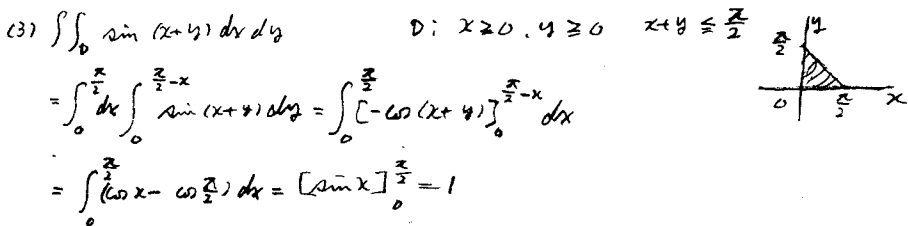 (3) ∬_D sin (x+y) dx dy    D: x≥0, y≥0  x+y ≦ π/2
= ∫_0^{π/2} dx ∫_0^{π/2 -x} sin (x+y) dy = ∫_0^{π/2} [-cos (x+y)]_0^{π/2 -x} dx
= ∫_0^{π/2} (cos x - cos π/2) dx = [sin x]_0^{π/2} = 1
y
π/2
0 π/2 x